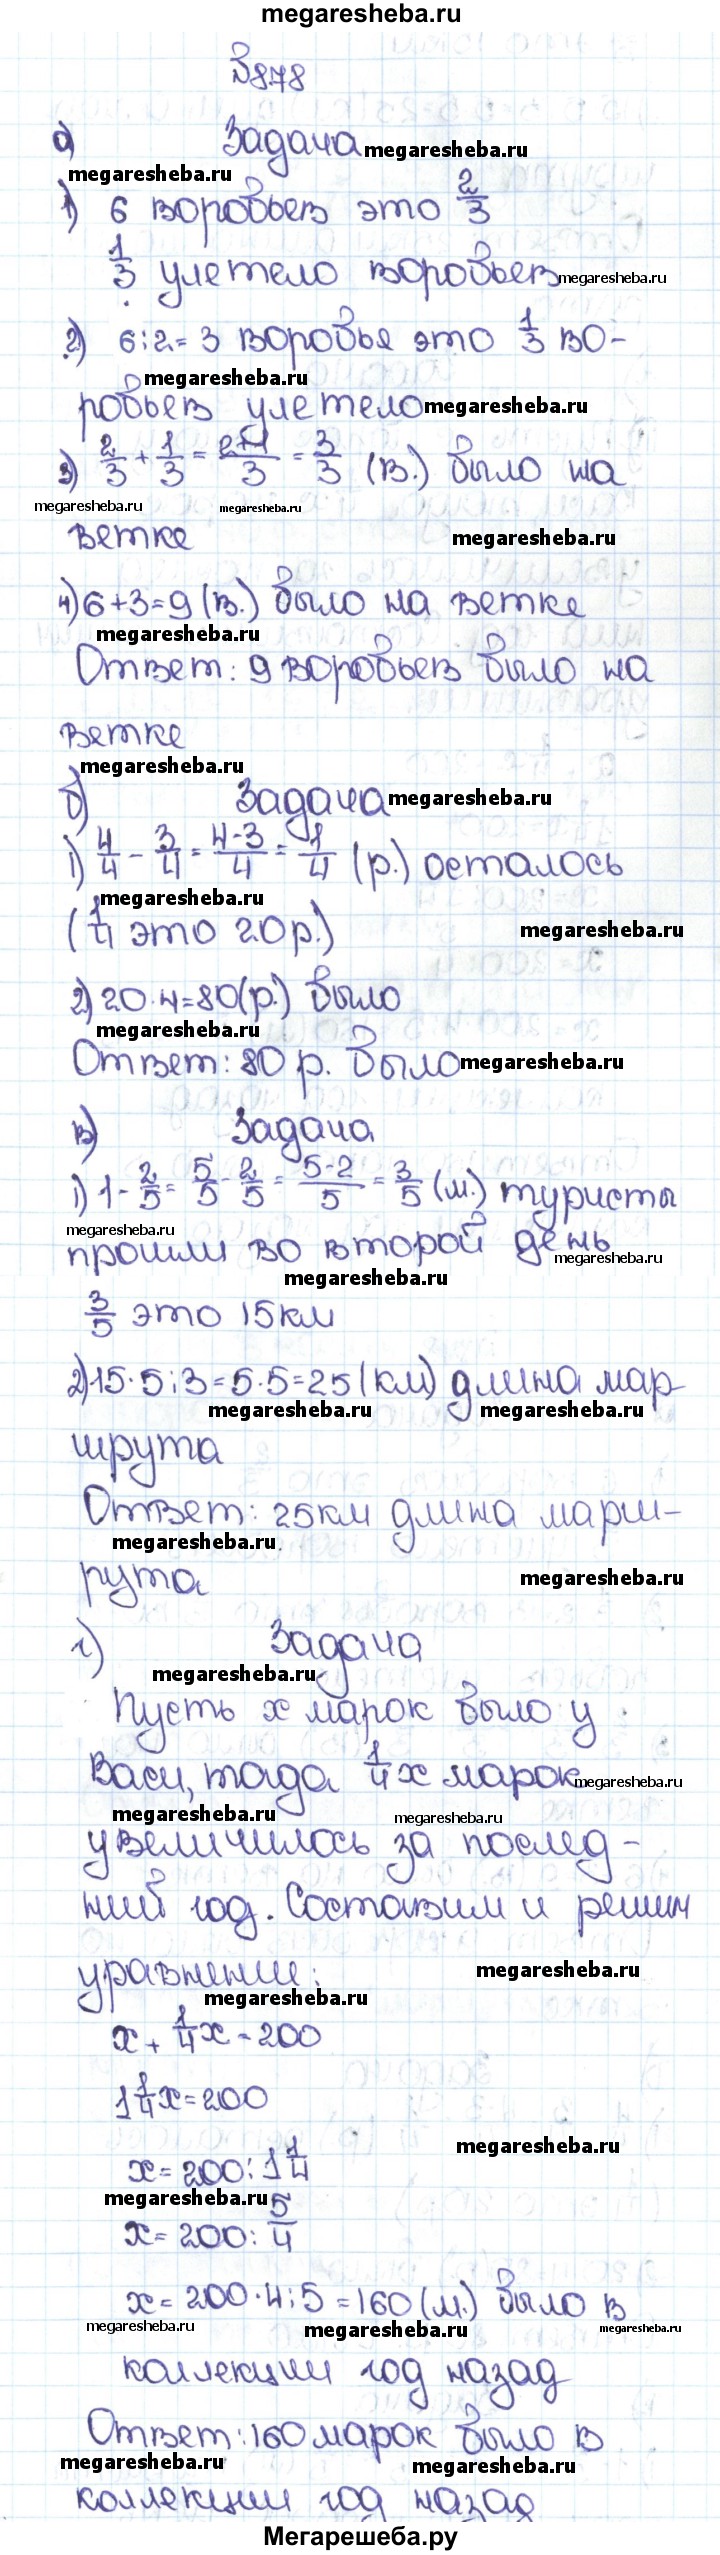 megaresheba.ru
№878
а) Задача megaresheba.ru
megaresheba.ru
1) 6 воробьев это 2/3
1/3 улетело воробьев megaresheba.ru
2) 6:2=3 воробья это 1/3 во-
megaresheba.ru
робьев улетело megaresheba.ru
3) 2/3 + 1/3 = 2+1/3 = 3/3 (в.) было на
megaresheba.ru megaresheba.ru
ветке megaresheba.ru
4) 6+3=9 (в.) было на ветке
megaresheba.ru
Ответ: 9 воробьев было на
ветке
megaresheba.ru
б) Задача megaresheba.ru
1) 4/4 - 3/4 = 4-3/4 = 1/4 (р.) осталось
megaresheba.ru
(1/4 это 20р.) megaresheba.ru
2) 20·4=80(р.) было
megaresheba.ru
Ответ: 80 р. было megaresheba.ru
в) Задача
1) 1 - 2/5 = 5/5 - 2/5 = 5-2/5 = 3/5 (м.) туристы
megaresheba.ru
прошли во второй день
megaresheba.ru
megaresheba.ru
3/5 это 15км
2) 15·5:3=5·5=25(км) длина мар
megaresheba.ru megaresheba.ru
шрута
Ответ: 25км длина марш-
megaresheba.ru
рута megaresheba.ru
г) Задача
megaresheba.ru
Пусть x марок было у
Васи, тогда 1/4x марок megaresheba.ru
megaresheba.ru megaresheba.ru
увеличилось за послед-
ний год. Составим и решим
уравнение: megaresheba.ru
megaresheba.ru
x + 1/4x = 200
1 1/4x=200
megaresheba.ru
x=200:1 1/4
megaresheba.ru
x=200:5/4
x=200·4:5=160(м.) было в
megaresheba.ru megaresheba.ru megaresheba.ru
коллекции год назад
Ответ:160 марок было в
megaresheba.ru megaresheba.ru
коллекции год назад
Мегарешеба.ру